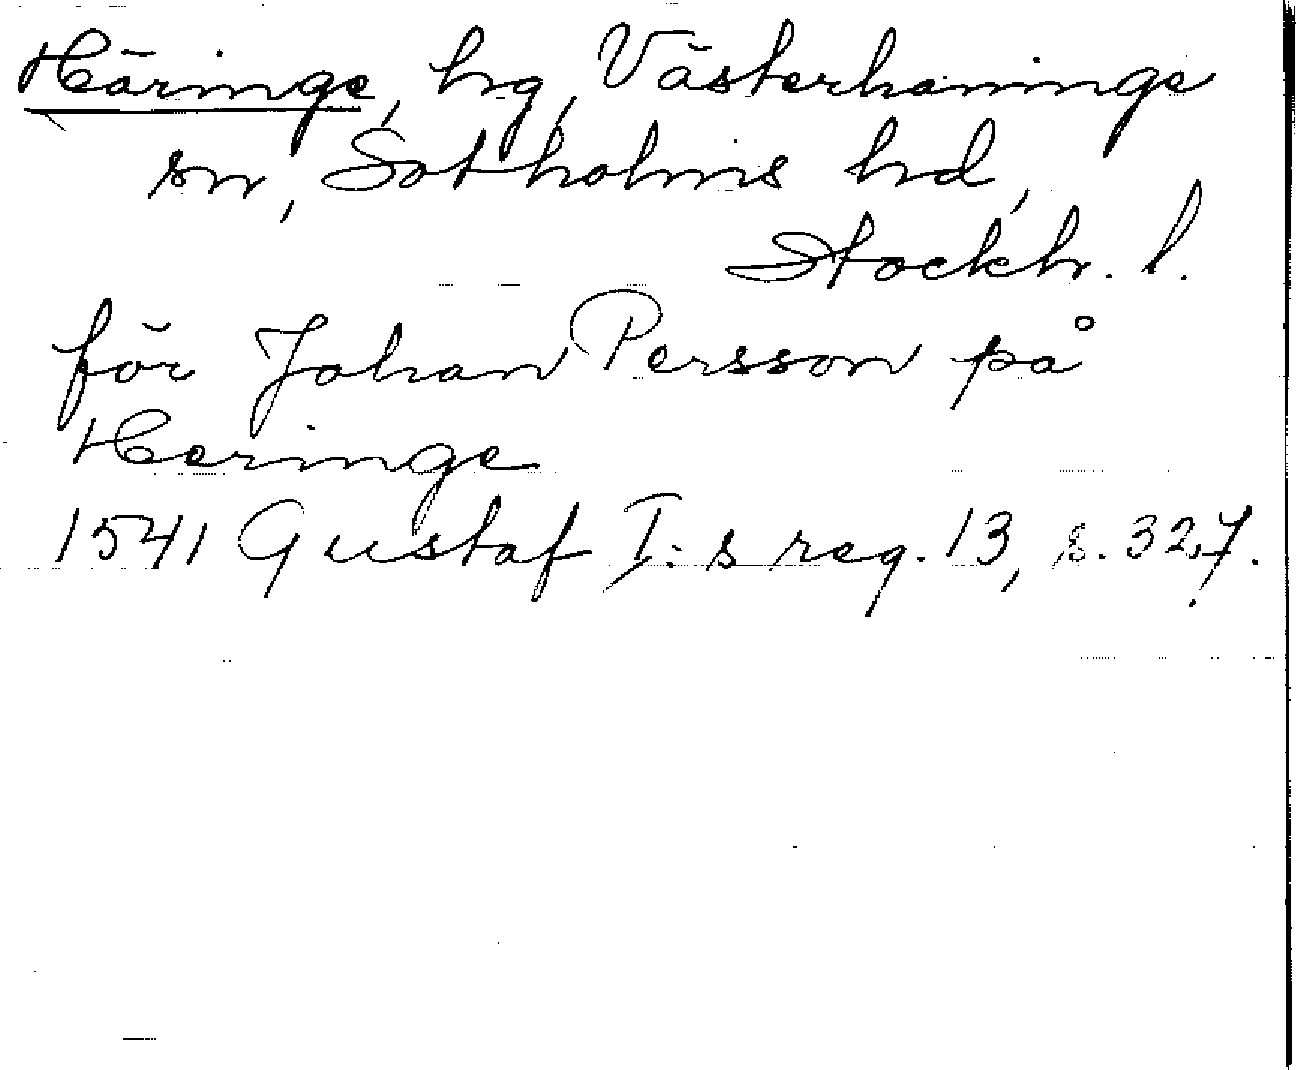 Häringe, hg, Västerhaninge
sn, Sotholms hd,
Stockh. l.
för Johan Persson på
Heringe
1541 Gustaf I:s reg. 13, s. 327.